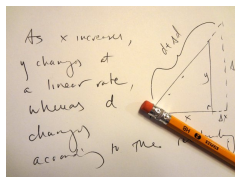 As x increases,
y changes at
a linear rate,
whereas d
changes
according to the
d+Δd
y
x
Δx